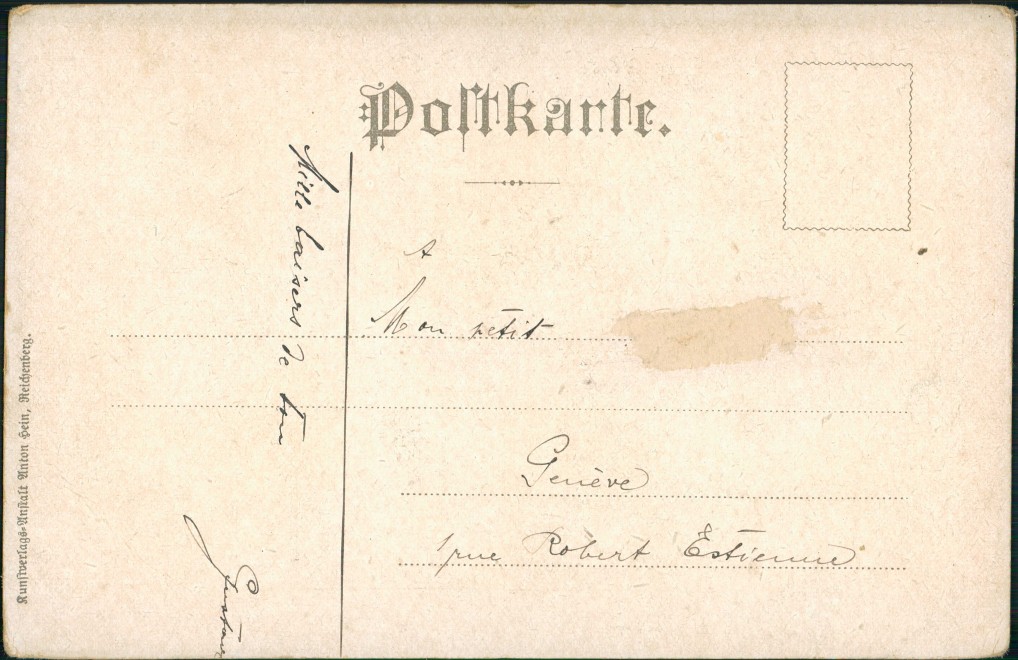 Postkarte.
Mille baisers de ton
Gustave
A
Mon petit
Genève
1 rue Robert Estienne
Kunstverlags-Anstalt Anton Hein, Reichenberg.